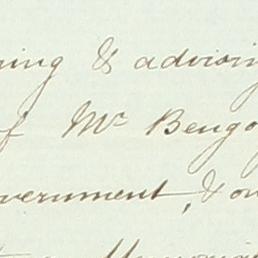 ning & advising
of Mr Bengo
vernment, & on